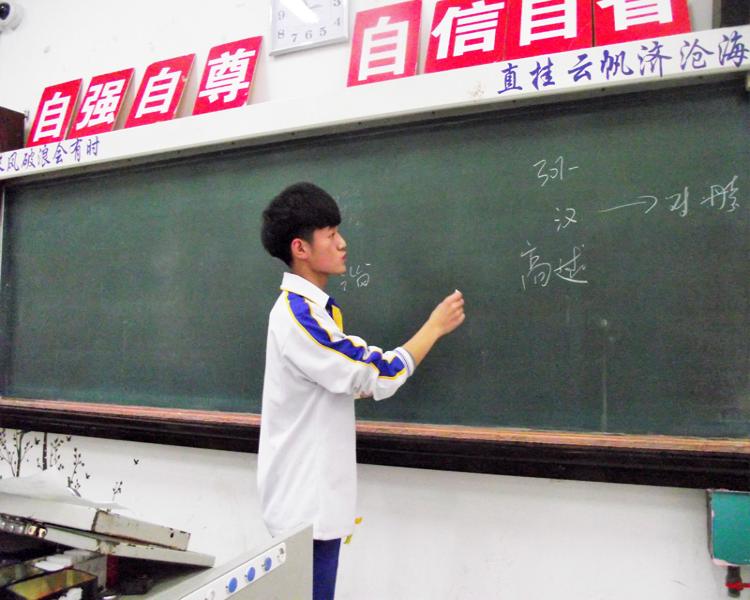 自强自尊
自信自省
9 3
8 7 6 5 4
风破浪会有时
直挂云帆济沧海
汉
高越